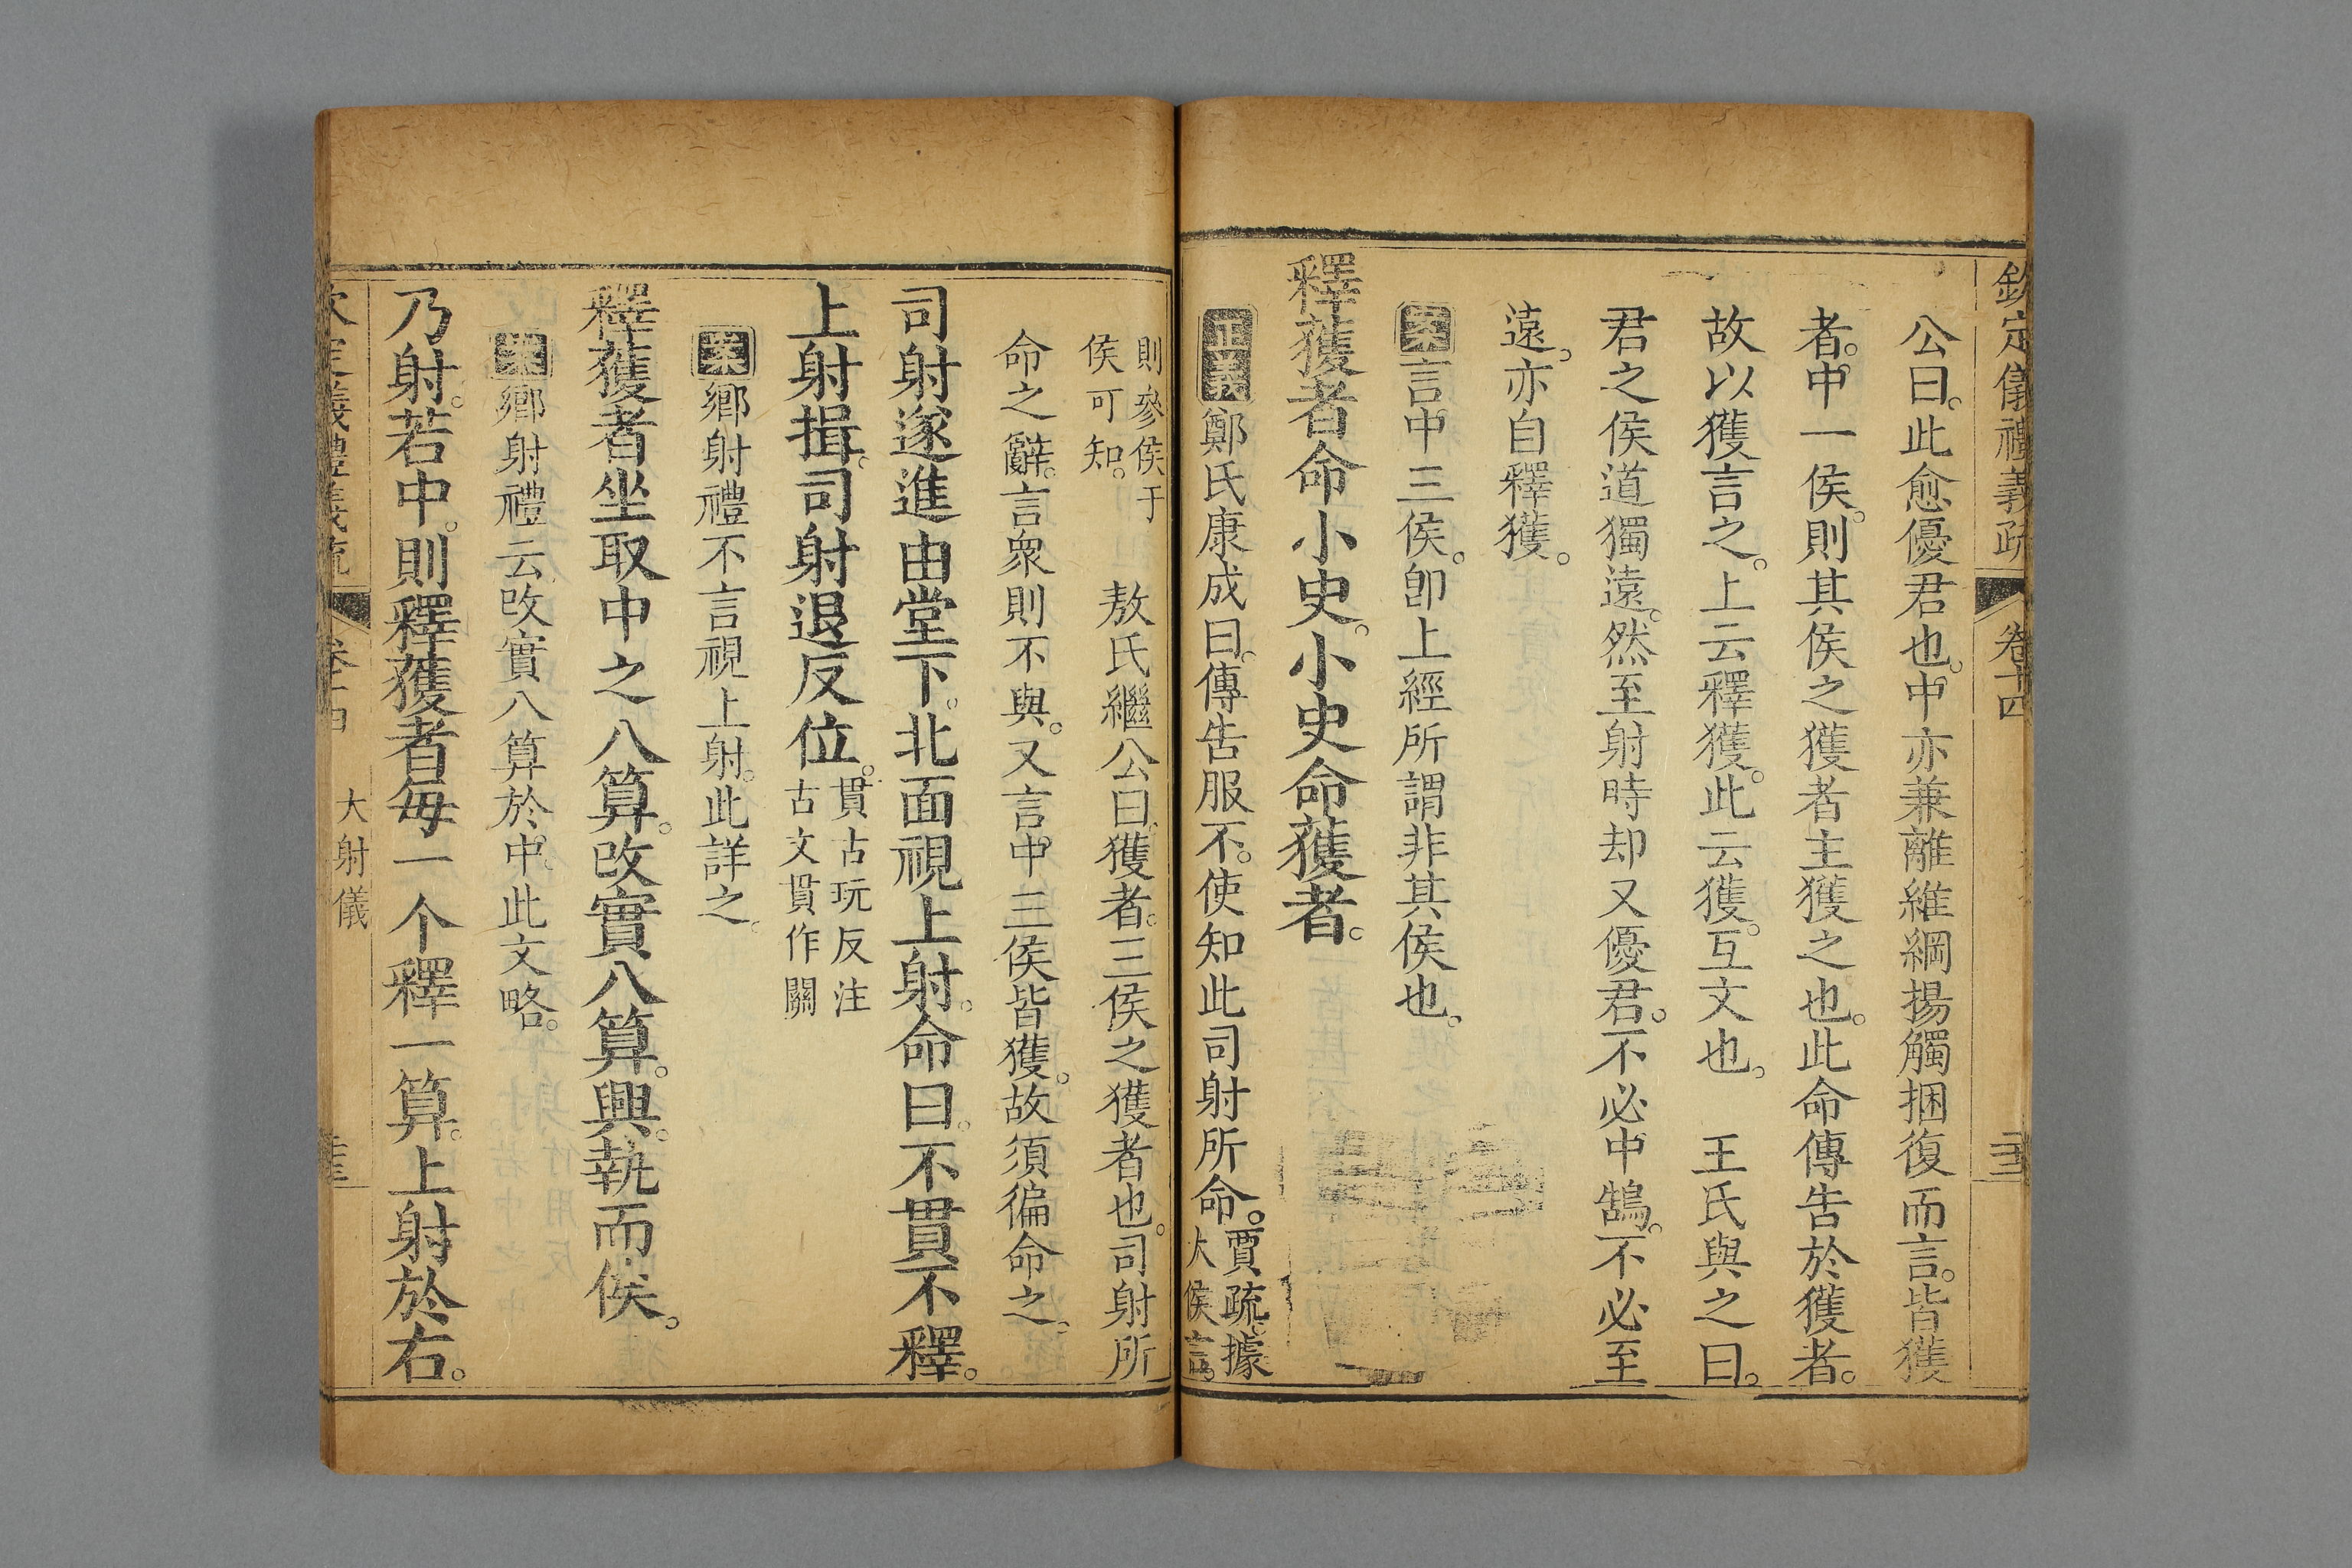 欽定儀禮義疏 卷十四
公曰。此愈優君也。中亦兼離維綱揚觸捆復而言。皆獲
者。中一侯。則其侯之獲者主獲之也。此命傳告於獲者。
故以獲言之。上云釋獲。此云獲。互文也。 王氏與之曰。
君之侯道獨遠。然至射時却又優君。不必中鵠。不必至
遠。亦自釋獲。
案言中三侯。卽上經所謂非其侯也。
釋獲者命小史。小史命獲者。
正義鄭氏康成曰。傳告服不。使知此司射所命。賈疏。據
大侯言。
則參侯于
侯可知。
敖氏繼公曰。獲者。三侯之獲者也。司射所
命之辭。言衆則不與。又言中三侯皆獲。故須徧命之。
司射遂進由堂下。北面視上射。命曰。不貫不釋。
上射揖。司射退反位。
貫古玩反注
古文貫作關
案鄉射禮不言視上射。此詳之。
釋獲者坐取中之八算。改實八算。興。執而俟。
案鄉射禮云改實八算於中。此文略。
乃射。若中。則釋獲者每一个釋一算。上射於右。
大射儀